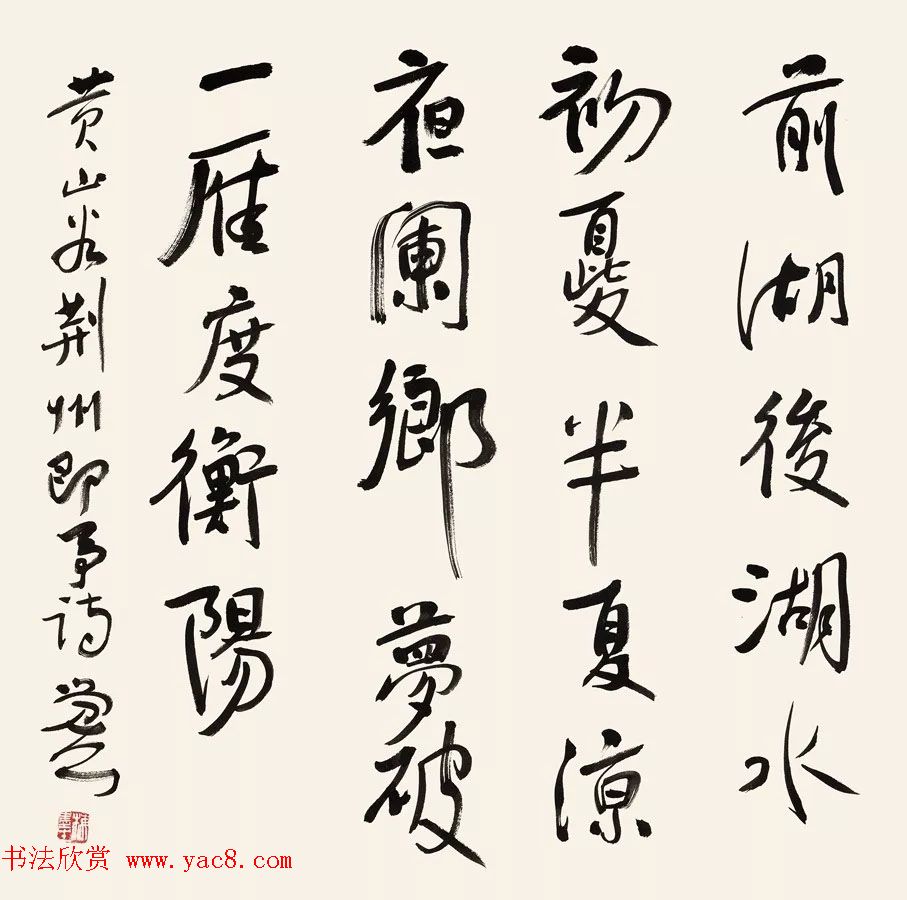 前湖後湖水
初夏半夏涼
夜闌鄉夢破
一雁度衡陽
黄山谷荆州即事詩
书法欣赏 www.yac8.com